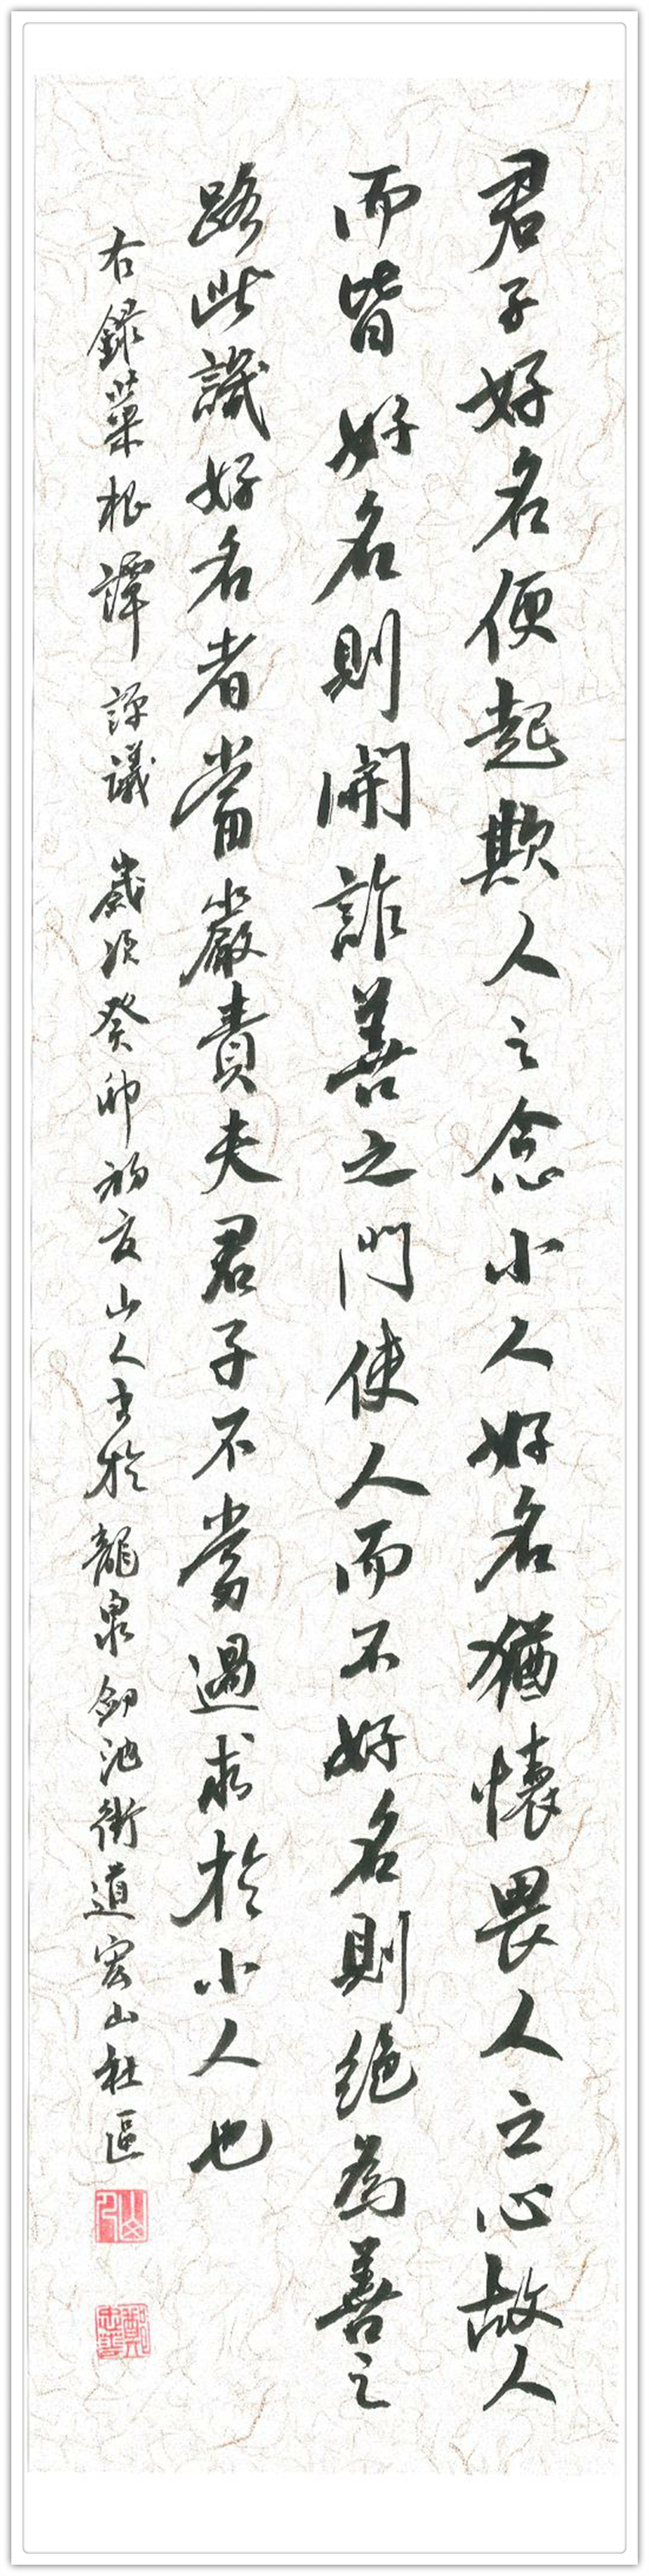 君子好名便起欺人之念小人好名猶懷畏人之心故人
而皆好名則開詐善之門使人而不好名則絕為善之
路此譏好名者當嚴責夫君子不當過求於小人也
右錄菜根譚評議歲次癸卯初夏山人書於龍泉劍池街道宏山社區
山人